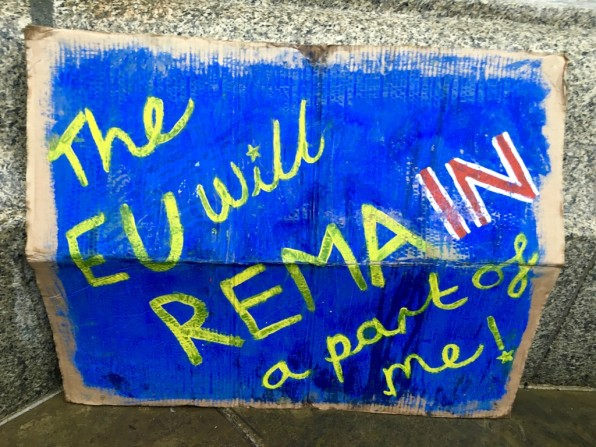 The
EU will
REMAIN
a part of
me!